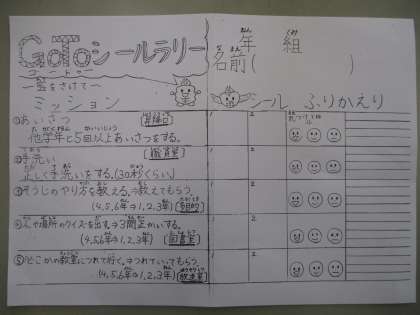 GoToシールラリー
ゴートゥー
〜密をさけて〜
ミッション
年 組
名前( )
シール ふりかえり
①あいさつ
他学年と5回以上あいさつをする。
②手洗い
正しく手洗いをする。(30秒くらい)
③そうじのやり方を教える。→教えてもらう。
(4.5.6年→1.2.3年)
④人や場所のクイズを出す→3問正かいする。
(4.5.6年→1.2.3年)
⑤どこかの教室につれて行く。→つれていってもらう。
(4.5.6年→1.2.3年)